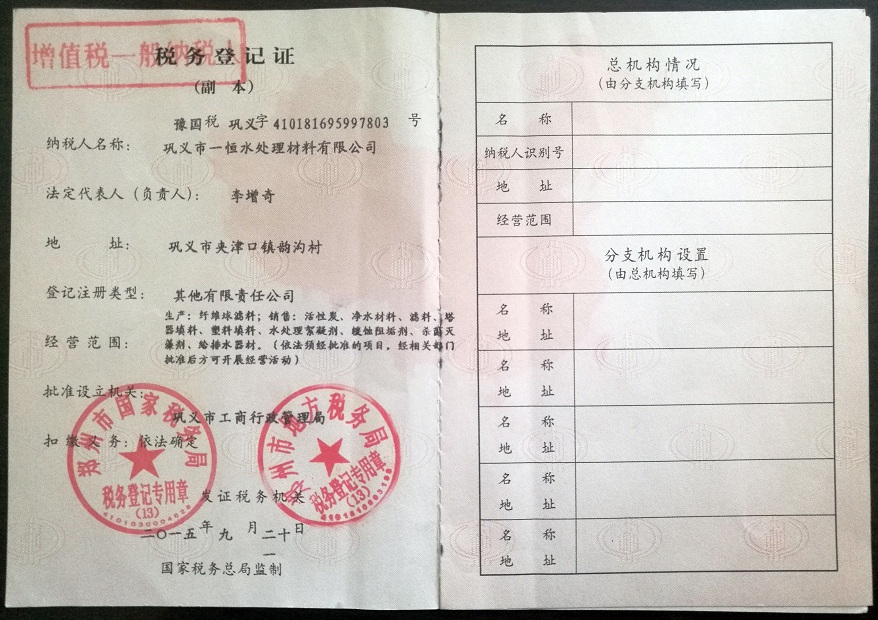 增值税一般纳税人
税务登记证
(副 本)
豫国税 巩义字 410181695997803 号
纳税人名称: 巩义市一恒水处理材料有限公司
法定代表人(负责人): 李增奇
地 址: 巩义市夹津口镇韵沟村
登记注册类型: 其他有限责任公司
生产:纤维球滤料;销售:活性炭、净水材料、滤料、塔
器填料、塑料填料、水处理絮凝剂、缓蚀阻垢剂、杀菌灭
经营范围: 藻剂、给排水器材。(依法须经批准的项目,经相关部门
批准后方可开展经营活动)
批准设立机关:
巩义市工商行政管理局
扣缴义务: 依法确定
郑州市国家税务局
税务登记专用章
(13)
4101030004028
郑州市地方税务局
税务登记专用章
(13)
发证税务机关
二〇一五年九月二十一日
国家税务总局监制
总机构情况
(由分支机构填写)
名 称
纳税人识别号
地 址
经营范围
分支机构设置
(由总机构填写)
名 称
地 址
名 称
地 址
名 称
地 址
名 称
地 址
名 称
地 址